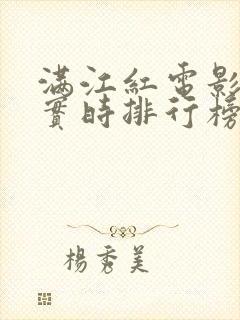 滿江紅電影
實時排行榜
楊秀美